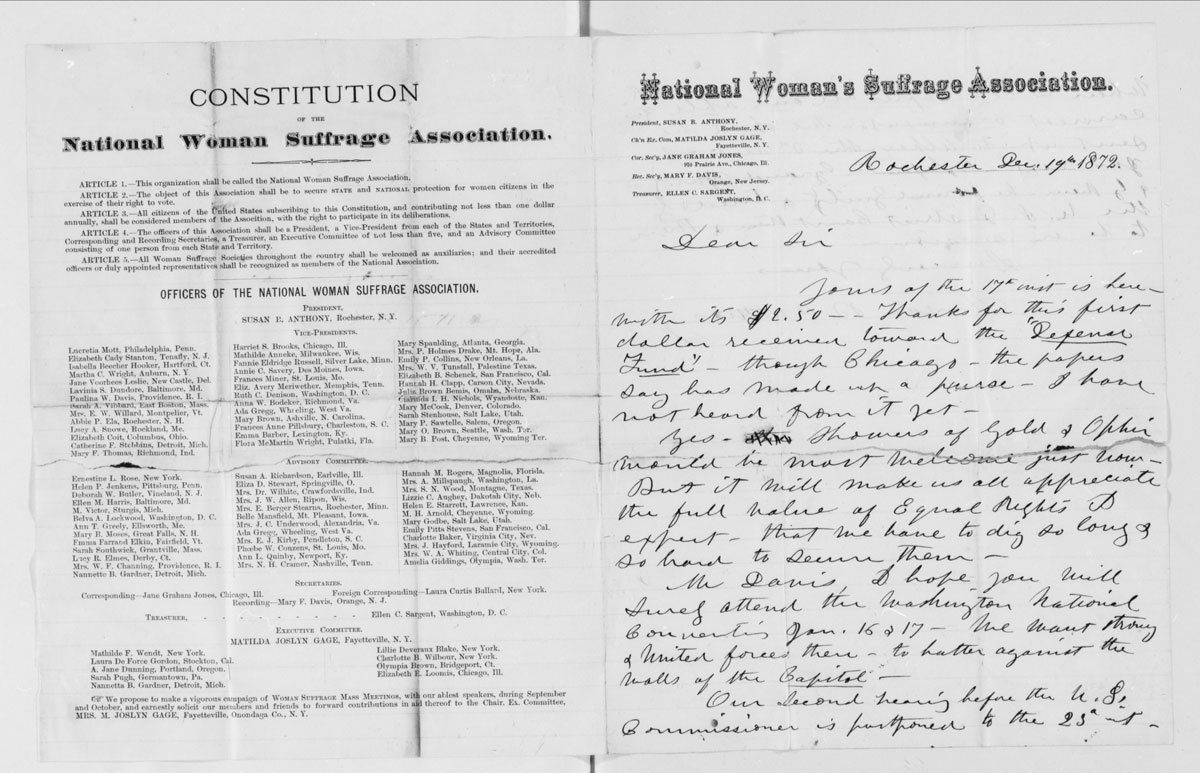 CONSTITUTION
OF THE
National Woman Suffrage Association.
ARTICLE 1.—This organization shall be called the National Woman Suffrage Association,
ARTICLE 2.—The object of this Association shall be to secure STATE and NATIONAL protection for women citizens in the
exercise of their right to vote.
ARTICLE 3.—All citizens of the United States subscribing to this Constitution, and contributing not less than one dollar
annually, shall be considered members of the Association, with the right to participate in its deliberations.
ARTICLE 4.—The officers of this Association shall be a President, a Vice-President from each of the States and Territories,
Corresponding and Recording Secretaries, a Treasurer, an Executive Committee of not less than five, and an Advisory Committee
consisting of one person from each State and Territory.
ARTICLE 5.—All Woman Suffrage Societies throughout the country shall be welcomed as auxiliaries; and their accredited
officers or duly appointed representatives shall be recognized as members of the National Association.
OFFICERS OF THE NATIONAL WOMAN SUFFRAGE ASSOCIATION.
PRESIDENT,
SUSAN B. ANTHONY, Rochester, N. Y.
VICE-PRESIDENTS.
Lucretia Mott, Philadelphia, Penn.
Elizabeth Cady Stanton, Tenafly, N. J.
Isabella Beecher Hooker, Hartford, Ct.
Martha C. Wright, Auburn, N. Y
Jane Voorhees Leslie, New Castle, Del.
Lavinia S. Dundore, Baltimore, Md.
Paulina W. Davis, Providence, R. I.
Sarah A. Vibbard, East Boston, Mass.
Mrs. E. W. Willard, Montpelier, Vt.
Abbie P. Ela, Rochester, N. H.
Lucy A. Snowe, Rockland, Me.
Elizabeth Coit, Columbus, Ohio.
Catherine F. Stebbins, Detroit, Mich.
Mary F. Thomas, Richmond, Ind.
Harriet S. Brooks, Chicago, Ill.
Mathilde Anneke, Milwaukee, Wis.
Fannie Eldridge Russell, Silver Lake, Minn.
Annie C. Savery, Des Moines, Iowa.
Frances Miner, St. Louis, Mo.
Eliz. Avery Meriwether, Memphis, Tenn.
Ruth C. Denison, Washington, D. C.
Anna W. Bodeker, Richmond, Va.
Ada Gregg, Wheeling, West Va.
Mary Brown, Ashville, N. Carolina.
Frances Anne Pillsbury, Charleston, S. C.
Emma Barber, Lexington, Ky.
Flora McMartin Wright, Pulatki, Fla.
Mary Spaulding, Atlanta, Georgia.
Mrs. P. Holmes Drake, Mt. Hope, Ala.
Emily P. Collins, New Orleans, La.
Mrs. W. V. Tunstall, Palestine, Texas.
Elizabeth B. Schenck, San Francisco, Cal.
Hannah H. Clapp, Carson City, Nevada.
Julia Brown Bemis, Omaha, Nebraska.
Clarinda I. H. Nichols, Wyandotte, Kan.
Mary McCook, Denver, Colorado.
Sarah Stenhouse, Salt Lake, Utah.
Mary P. Sawtelle, Salem, Oregon.
Mary O. Brown, Seattle, Wash. Ter.
Mary B. Post, Cheyenne, Wyoming Ter.
ADVISORY COMMITTEE.
Ernestine L. Rose, New York.
Helen P. Jenkens, Pittsburg, Penn.
Deborah W. Butler, Vineland, N. J.
Ellen M. Harris, Baltimore, Md.
M. Victor, Sturgis, Mich.
Belva A. Lockwood, Washington, D. C.
Ann T. Greely, Ellsworth, Me.
Mary B. Moses, Great Falls, N. H.
Emma Farrand Elkin, Fairfield, Vt.
Sarah Southwick, Grantville, Mass.
Lucy R. Elmes, Derby, Ct.
Mrs. W. F. Channing, Providence, R. I.
Nannette B. Gardner, Detroit, Mich.
Susan A. Richardson, Earlville, Ill.
Eliza D. Stewart, Springville, O.
Mrs. Dr. Wilhite, Crawfordsville, Ind.
Mrs. J. W. Allen, Ripon, Wis.
Mrs. E. Berger Stearns, Rochester, Minn.
Belle Mansfield, Mt. Pleasant, Iowa.
Mrs. J. C. Underwood, Alexandria, Va.
Ada Gregg, Wheeling, West Va.
Mrs. E. J. Kirby, Pendleton, S. C.
Phoebe W. Couzens, St. Louis, Mo.
Ann L. Quinby, Newport, Ky.
Mrs. N. H. Cramer, Nashville, Tenn.
Hannah M. Rogers, Magnolia, Florida.
Mrs. A. Millspaugh, Washington, La.
Mrs. S. N. Wood, Montagne, Texas.
Lizzie C. Aughey, Dakotah City, Neb.
Helen E. Starrett, Lawrence, Kan.
M. H. Arnold, Cheyenne, Wyoming.
Mary Godbe, Salt Lake, Utah.
Emily Pitts Stevens, San Francisco, Cal.
Charlotte Baker, Virginia City, Nev.
Mrs. J. Hayford, Laramie City, Wyoming.
Mrs. W. A. Whiting, Central City, Col.
Amelia Giddings, Olympia, Wash. Ter.
SECRETARIES.
Corresponding—Jane Graham Jones, Chicago, Ill. Foreign Corresponding—Laura Curtis Bullard, New York.
Recording—Mary F. Davis, Orange, N. J.
TREASURER, - - - - - - - Ellen C. Sargent, Washington, D. C.
EXECUTIVE COMMITTEE.
MATILDA JOSLYN GAGE, Fayetteville, N. Y.
Mathilde F. Wendt, New York.
Laura De Force Gordon, Stockton, Cal.
A. Jane Dunning, Portland, Oregon.
Sarah Pugh, Germantown, Pa.
Nannetta B. Gardner, Detroit, Mich.
Lillie Deveraux Blake, New York.
Charlotte B. Wilbour, New York.
Olympia Brown, Bridgeport, Ct.
Elizabeth E. Loomis, Chicago, Ill.
☞ We propose to make a vigorous campaign of WOMAN SUFFRAGE MASS MEETINGS, with our ablest speakers, during September
and October, and earnestly solicit our members and friends to forward contributions in aid thereof to the Chair. Ex. Committee,
MRS. M. JOSLYN GAGE, Fayetteville, Onondaga Co., N. Y.
National Woman's Suffrage Association.
President, SUSAN B. ANTHONY,
Rochester, N. Y.
Ch'n Ex. Com, MATILDA JOSLYN GAGE,
Fayetteville, N. Y.
Cor. Sec'y, JANE GRAHAM JONES,
910 Prairie Ave., Chicago, Ill.
Rec. Sec'y, MARY F. DAVIS,
Orange, New Jersey.
Treasurer, ELLEN C. SARGENT,
Washington, D. C.
Rochester Dec. 19th 1872.
Dear Sir
Yours of the 17th inst is here-
with its $2.50 — Thanks for this first
dollar received toward the "Defense
Fund — though Chicago — the papers
say has made up a purse — I have
not heard from it yet —
Yes — Thomas of Gold & Ophir
would be most welcome just now —
But it will make us all appreciate
the full value of Equal Rights I
expect — that we have to dig so long &
so hard to secure them —
Mr Davis I hope you will
surely attend the Washington National
Convention Jan. 16 & 17 — We want strong
& united forces there — to batter against the
walls of the Capitol —
Our second hearing before the U. S.
Commissioner is postponed to the 23d